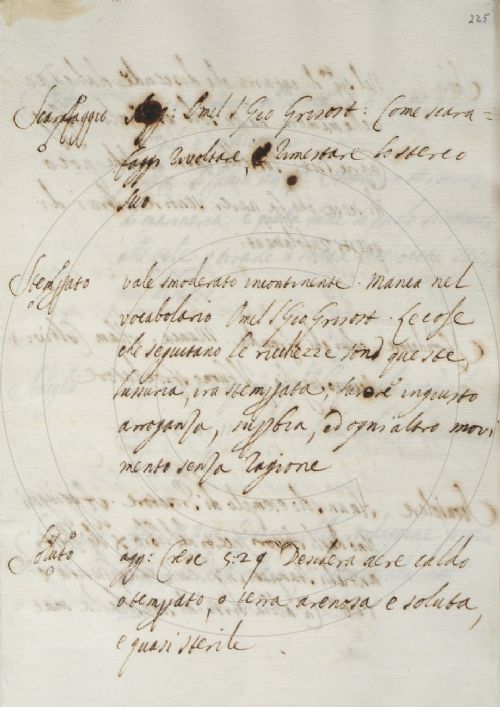 225
Scarafaggio Agg: Omel S Gio Grisost: Come scara=
faggi rivoltare, e rimestare lo stereo
suo
Stempato vale smoderato incontinente. Manca nel
vocabolario. Omel S Gio Grisost. Le cose
che seguitano le richezze sono queste,
lussuria, ira stempata, furore ingiusto
arroganza, supbia, ed ogni altro movi
mento senza ragione
Soluto agg: Cresc 5:29 Desidera aere caldo
o tempato, o terra arenosa e soluta,
e quasi sterile